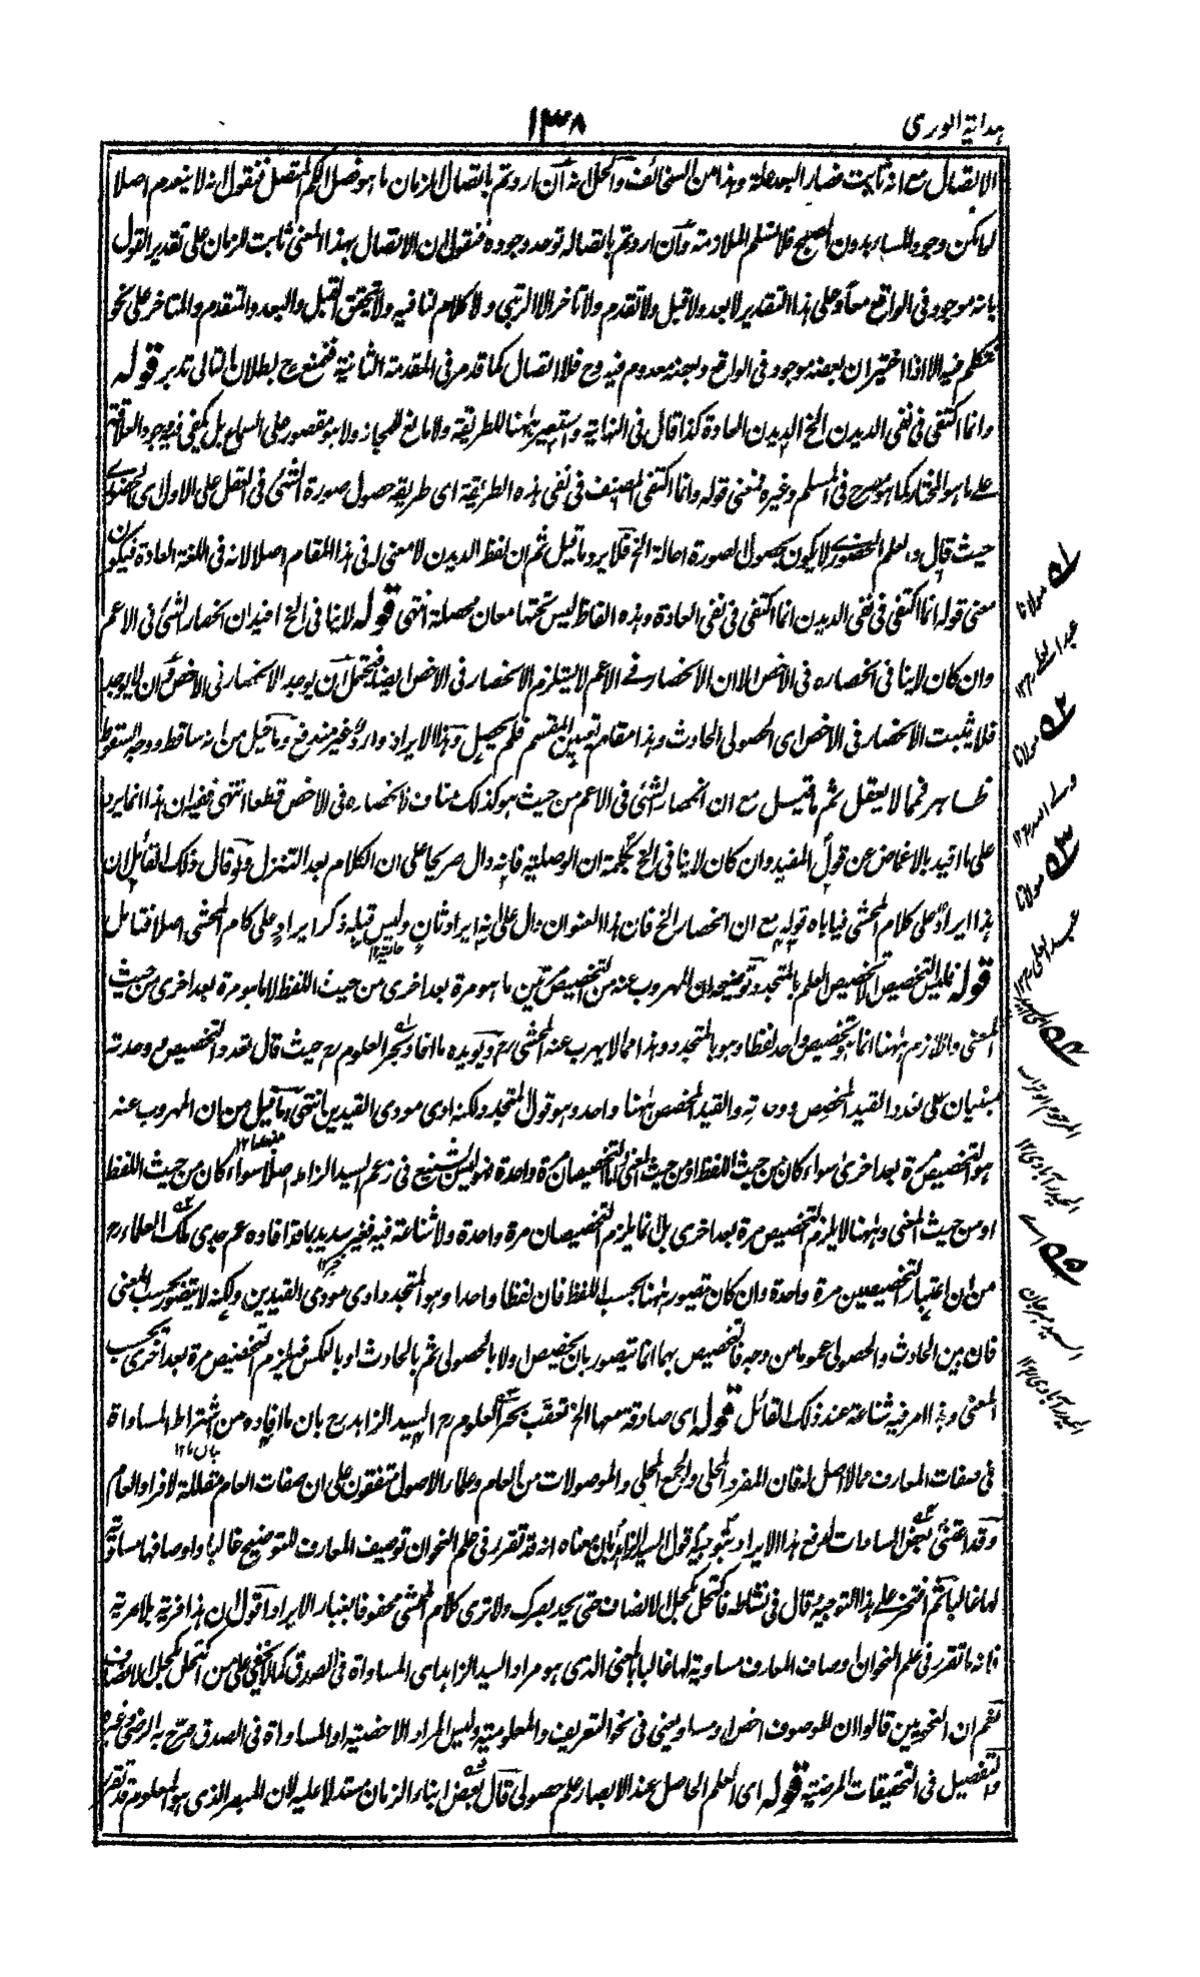 هداية الورى
١٣٨
الاتصال مع انه ثابت فصار البعد علة وهذا من السخائف والحل انه ان اردتم باتصال الزمان ما هو فصل الكم المتصل فنقول انه لا ينعدم اصلا
لما يمكن وجود المسار بدون المصحح فلا نسلم الملازمة وان اردتم باتصاله توحد وجوده فنقول ان الاتصال بهذا المعنى ثابت للزمان على تقدير القول
بانه موجود في الواقع معا وعلى هذا التقدير لا بعد ولا قبل ولا تقدم ولا تاخر الا الرتبي ولا كلام لنا فيه ولا يتحقق القبل والبعد والمتقدم والمتاخر على نحو
نتكلم فيه الا اذا اختير ان بعضه موجود في الواقع وبعضه معدوم فيه وح فلا اتصال كما قد مر في المقدمة الثانية فنمنع ح بطلان التالي تدبر قوله
وانما اكتفى في نفي الديدن الخ الديدن العادة كذا قال في النهاية واستعير ههنا للطريقة ولا مانع للمجاز ولا هو مقصور على السماع بل يكفي فيه وجود العلاقة
على ما هو المختار كما هو مصرح في المسلم وغيره فمعنى قوله وانما اكتفى المصنف في نفي هذه الطريقة اى طريقة حصول صورة الشئ في العقل على الاول اى الحضورى
حيث قال والعلم الحضورى لا يكون بحصول الصورة احالة الخ فلا يرد ما قيل ثم ان لفظ الديدن لا معنى له في هذا المقام اصلا لانه في اللغة العادة فيكون
معنى قوله انما اكتفى في نفي الديدن انما اكتفى في نفي العادة وهذه الفاظ ليس تحتها معان محصلة انتهى قوله لا ينافي الخ افيد ان انحصار الشئ في الاعم
وان كان لا ينافي انحصاره في الاخص الا ان الانحصار في الاعم لا يستلزم الانحصار في الاخص ايضا فيحتمل ان يوجد الانحصار في الاخص وان لا يوجد
فلا يثبت الانحصار في الاخص اى الحصولى الحادث وهذا مقام تعيين المقسم فلم يحصل وهذا الايراد وارد غير مندفع وما قيل من انه ساقط ووجه السقوط
ظاهر فمما لا يعقل ثم ما قيل مع ان انحصار الشئ في الاعم من حيث هو كذلك مناف لانحصاره في الاخص قطعا انتهى ففيه ان هذا انما يرد
على ما افيد بالاغماض عن قول المفيد وان كان لا ينافي الخ بكلمة ان الوصلية فانه دال صريحا على ان الكلام بعد التنزل ولو قال ذلك القائل ان
هذا ايراد على كلام المحشى فياباه قوله مع ان انحصار الخ فان هذا العنوان دال على انه ايراد ثان وليس قبله ذكر ايراد على كلام المحشى اصلا فتامل
قوله فليس التخصيص الا تخصيص العلم بالمتجدد توضيحه ان المهروب عنه من التخصيص مرتين ما هو مرة بعد اخرى من حيث اللفظ لا ما هو مرة بعد اخرى من حيث
المعنى واللازم ههنا انما هو تخصيص واحد لفظا وهو بالمتجدد وهذا مما لا يهرب عنه المحشى رح ويويده ما افاد بحر العلوم رح حيث قال تعدد التخصيص ووحدته
مبنيان على تعدد القيد المخصص ووحدته والقيد المخصص ههنا واحد وهو قوله المتجدد ولكنه اوى مودى القيدين انتهى وما قيل من ان المهروب عنه
هو التخصيص مرة بعد اخرى سواء كان من حيث اللفظ او من حيث المعنى اما التخصيصان مرة واحدة فهو ليس بشنيع في زعم السيد الزاهد اصلا سواء كان من حيث اللفظ
او من حيث المعنى وههنا لا يلزم التخصيص مرة بعد اخرى بل انما يلزم التخصيصان مرة واحدة ولا شناعة فيه فغير سديد بما قد افاده عم جدى ملك العلماء رح
من ان اعتبار التخصيصين مرة واحدة وان كان يتصور ههنا بحسب اللفظ فان لفظا واحدا وهو المتجدد اوى مودى القيدين ولكنه لا يتصور بحسب المعنى
فان بين الحادث والحصولى عموما من وجه فالتخصيص بهما انما يتصور بان يخصص اولا بالحصولى ثم بالحادث او بالعكس فيلزم التخصيص مرة بعد اخرى بحسب
المعنى وهذا الامر فيه شناعة عند ذلك القائل قوله اى صادقة معها الخ تعقب بحر العلوم رح السيد الزاهد رح بان ما افاده من اشتراط المساواة
في صفات المعارف مما لا اصل له فان المفرد المحلى والجمع المحلى والموصولات من العام وعلماء الاصول متفقون على ان صفات العام مقللة لافراد العام
وقد اعتنى بعض السادات لدفع هذا الايراد بتوجيه قول السيد الزاهد بان معناه انه قد تقرر في علم النحو ان توصيف المعارف للتوضيح غالبا واوصافها مساوية
لها غالبا ثم افتخر على هذا التوجيه وقال في نشاطه فاكتحل بكحل الانصاف حتى يحد بصرك ولا ترى كلام المحشى محفوفا بغبار الايراد اقول ان هذا فرية بلا مرية
فانه ما تقرر في علم النحو ان اوصاف المعارف مساوية لها غالبا بالمعنى الذى هو مراد السيد الزاهد اى المساواة في الصدق كما لا يخفى على من اكتحل بكحل الانصاف
نعم ان النحويين قالوا ان الموصوف اخص او مساو يعنى في نحو التعريف والمعلومية وليس المراد الاخصية او المساواة في الصدق صرح به الرضى وغيره
والتفصيل في التحقيقات المرضية قوله اى العلم الحاصل عند الابصار علم حصولى قال بعض ابناء الزمان مستدلا عليه لان المبصر الذى هو المعلوم قد تقرر
مولانا
مولانا
مولانا
الحيدرآبادى ١٢
السيد
الحيدرآبادى ١٢